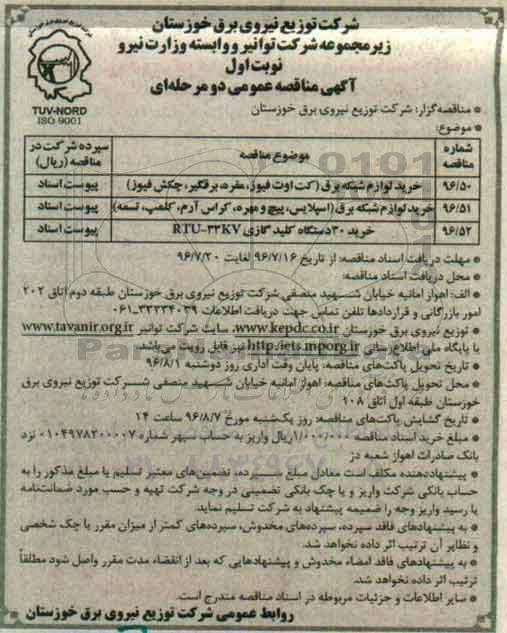 شرکت توزیع نیروی برق خوزستان
زیرمجموعه شرکت توانیر و وابسته وزارت نیرو
نوبت اول
آگهی مناقصه عمومی دو مرحله‌ای
TUV-NORD
ISO 9001
* مناقصه‌گزار: شرکت توزیع نیروی برق خوزستان
* موضوع:
شماره مناقصه	موضوع مناقصه	سپرده شرکت در مناقصه (ریال)
۹۶/۵۰	خرید لوازم شبکه برق (کت اوت فیوز، مقره، برقگیر، چکش فیوز)	پیوست اسناد
۹۶/۵۱	خرید لوازم شبکه برق (اسپلایس، پیچ و مهره، کراس آرم، کلمپ، تسمه)	پیوست اسناد
۹۶/۵۲	خرید ۳۰ دستگاه کلید گازی RTU-۳۳KV	پیوست اسناد
* مهلت دریافت اسناد مناقصه: از تاریخ ۹۶/۷/۱۶ لغایت ۹۶/۷/۲۰
* محل دریافت اسناد مناقصه:
* الف: اهواز امانیه خیابان شهید منصفی شرکت توزیع نیروی برق خوزستان طبقه دوم اتاق ۲۰۲
امور بازرگانی و قراردادها تلفن تماس جهت دریافت اطلاعات ۳۳۳۳۴۰۳۹-۰۶۱
* توزیع نیروی برق خوزستان www.kepdc.co.ir، سایت شرکت توانیر www.tavanir.org.ir
یا پایگاه ملی اطلاع‌رسانی http:/iets.mporg.ir نیز قابل رویت می‌باشد.
* تاریخ تحویل پاکت‌های مناقصه: پایان وقت اداری روز دوشنبه ۹۶/۸/۱
* محل تحویل پاکت‌های مناقصه: اهواز امانیه خیابان شهید منصفی شرکت توزیع نیروی برق
خوزستان طبقه اول اتاق ۱۰۸
* تاریخ گشایش پاکت‌های مناقصه: روز یک‌شنبه مورخ ۹۶/۸/۷ ساعت ۱۴
* مبلغ خرید اسناد مناقصه ۱/۰۰۰/۰۰۰ریال واریز به حساب سپهر شماره ۰۱۰۴۹۷۸۲۰۰۰۰۷ نزد
بانک صادرات اهواز شعبه دز
* پیشنهاددهنده مکلف است معادل مبلغ سپرده، تضمین‌های معتبر تسلیم یا مبلغ مذکور را به
حساب بانکی شرکت واریز و یا چک بانکی تضمینی در وجه شرکت تهیه و حسب مورد ضمانتنامه
یا رسید واریز وجه را ضمیمه پیشنهاد به شرکت تسلیم نماید.
* به پیشنهادهای فاقد سپرده، سپرده‌های مخدوش، سپرده‌های کمتر از میزان مقرر یا چک شخصی
و نظایر آن ترتیب اثر داده نخواهد شد.
* به پیشنهادهای فاقد امضاء مخدوش و پیشنهادهایی که بعد از انقضاء مدت مقرر واصل شود مطلقاً
ترتیب اثر داده نخواهد شد.
* سایر اطلاعات و جزئیات مربوطه در اسناد مناقصه مندرج است.
روابط عمومی شرکت توزیع نیروی برق خوزستان